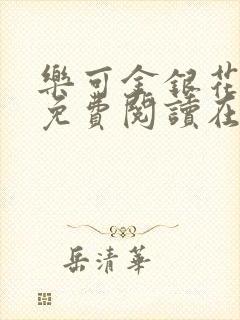 樂可金銀花
免費閱讀在
岳清華